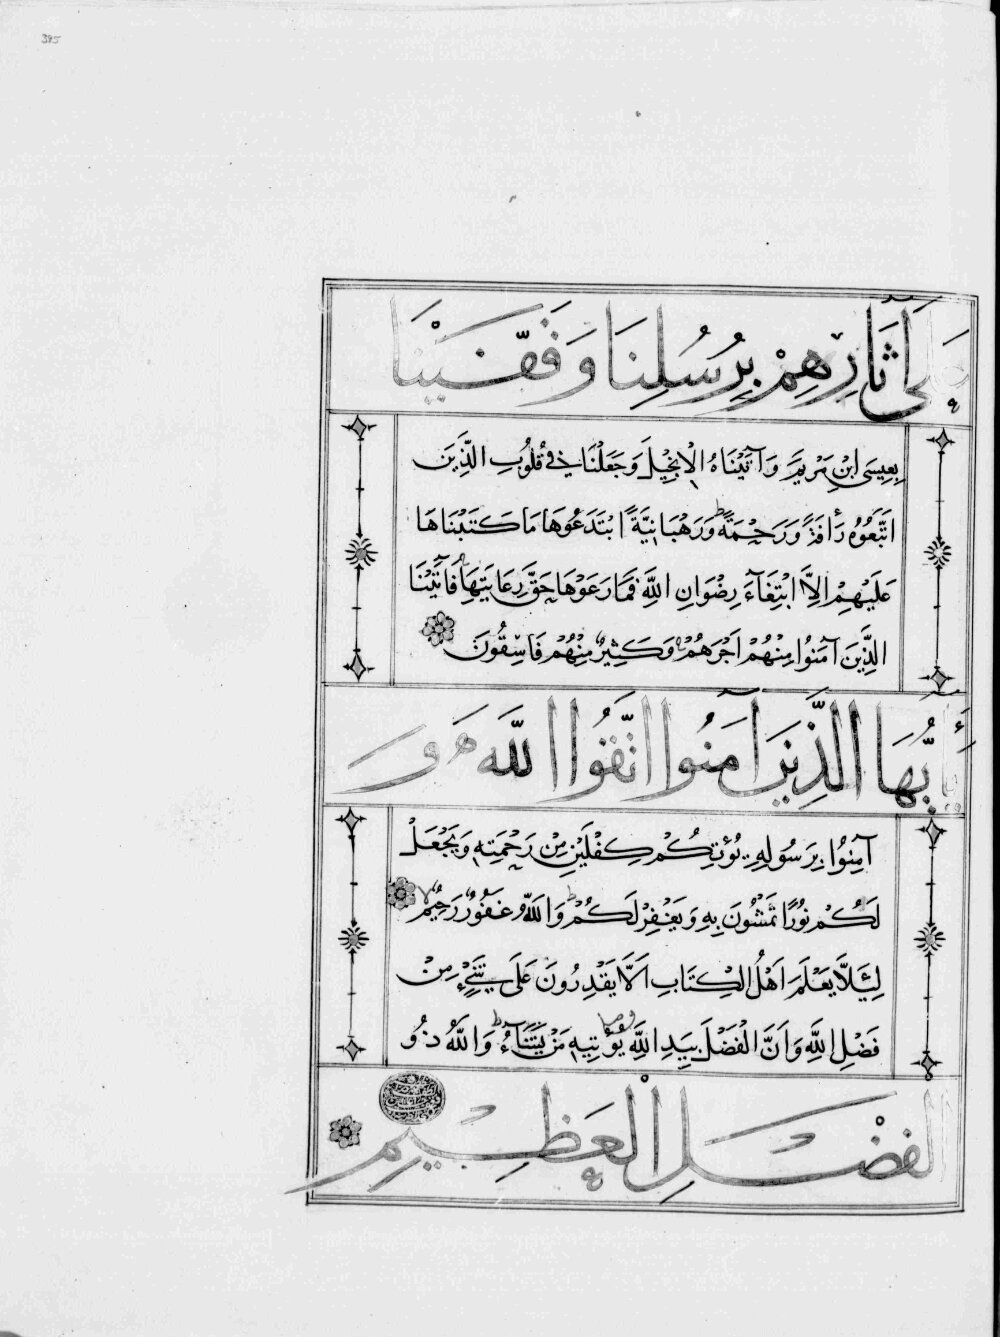 395
عَلَى آثَارِهِمْ بِرُسُلِنَا وَقَفَّيْنَا
بِعِيسَى ابْنِ مَرْيَمَ وَآتَيْنَاهُ الْإِنْجِيلَ وَجَعَلْنَا فِي قُلُوبِ الَّذِينَ
اتَّبَعُوهُ رَأْفَةً وَرَحْمَةً ط وَرَهْبَانِيَّةً ابْتَدَعُوهَا مَا كَتَبْنَاهَا
عَلَيْهِمْ اِلَّا ابْتِغَآءَ رِضْوَانِ اللَّهِ فَمَا رَعَوْهَا حَقَّ رِعَايَتِهَا فَآتَيْنَا
الَّذِينَ آمَنُوا مِنْهُمْ اَجْرَهُمْ وَكَثِيرٌ مِنْهُمْ فَاسِقُونَ
يَا اَيُّهَا الَّذِينَ آمَنُوا اتَّقُوا اللَّهَ وَ
آمِنُوا بِرَسُولِهِ يُؤْتِكُمْ كِفْلَيْنِ مِنْ رَحْمَتِهِ وَيَجْعَلْ
لَكُمْ نُورًا تَمْشُونَ بِهِ وَيَغْفِرْ لَكُمْ ط وَاللَّهُ غَفُورٌ رَحِيمٌ
لِئَلَّا يَعْلَمَ اَهْلُ الْكِتَابِ اَلَّا يَقْدِرُونَ عَلَى شَيْءٍ مِنْ
فَضْلِ اللَّهِ وَاَنَّ الْفَضْلَ بِيَدِ اللَّهِ يُؤْتِيهِ مَنْ يَشَآءُ ط وَاللَّهُ ذُو
الْفَضْلِ الْعَظِيمِ